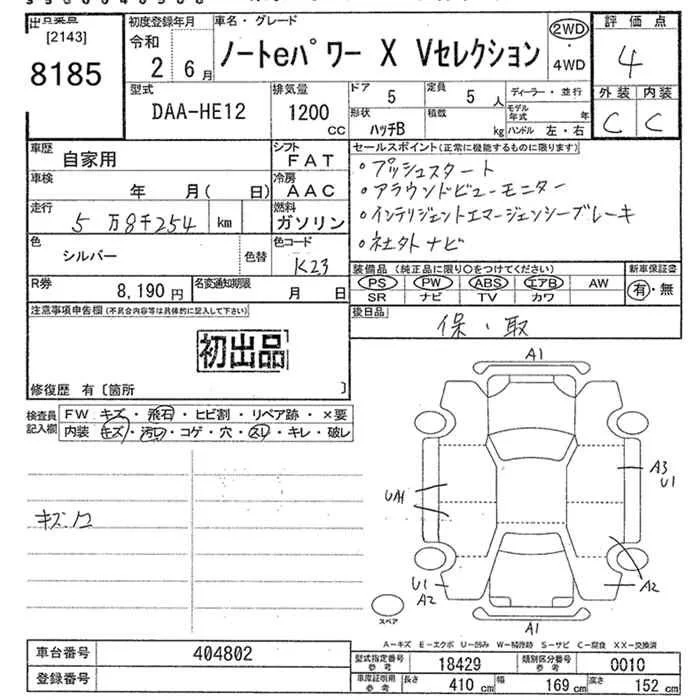 [2143]
8185
初度登録年月
令和
2 6月
車名・グレード
ノートeパワー X Vセレクション
2WD
・
4WD
評価点
4
外装 内装
C C
型式
DAA-HE12
排気量
1200
CC
ドア 5
定員 5 人
形状 ハッチB
積載 kg
ディーラー・並行
モデル年式 年
ハンドル 左・右
車歴 自家用
シフト FAT
車検 年 月( 日)
冷房 AAC
走行 5万8千254 km
燃料 ガソリン
色 シルバー 色替
色コード K23
R券 8,190円
名変通知期限 月 日
セールスポイント(正常に機能するものに限ります)
・プッシュスタート
・アラウンドビューモニター
・インテリジェントエマージェンシーブレーキ
・社外ナビ
装備品(純正品に限り○をつけてください)
PS PW ABS エアB AW
SR ナビ TV カワ
新車保証書
有・無
後日品
保・取
注意事項申告欄(不具合内容等は具体的に記入して下さい)
初出品
修復歴 有〔箇所 〕
検査員記入欄
FW キズ・飛石・ヒビ割・リペア跡・×要
内装 キズ・汚れ・コゲ・穴・スレ・キレ・破レ
キズ・凹コ
A1
A3
U1
UA1
U1
A2
A2
A1
スペア
A-キズ E-エクボ U-凹み W-補修跡 S-サビ C-腐食 XX-交換済
車台番号 404802
登録番号
型式指定番号 参考 18429
類別区分番号 参考 0010
車庫証明用 参考 長さ 410cm 幅 169cm 高さ 152cm